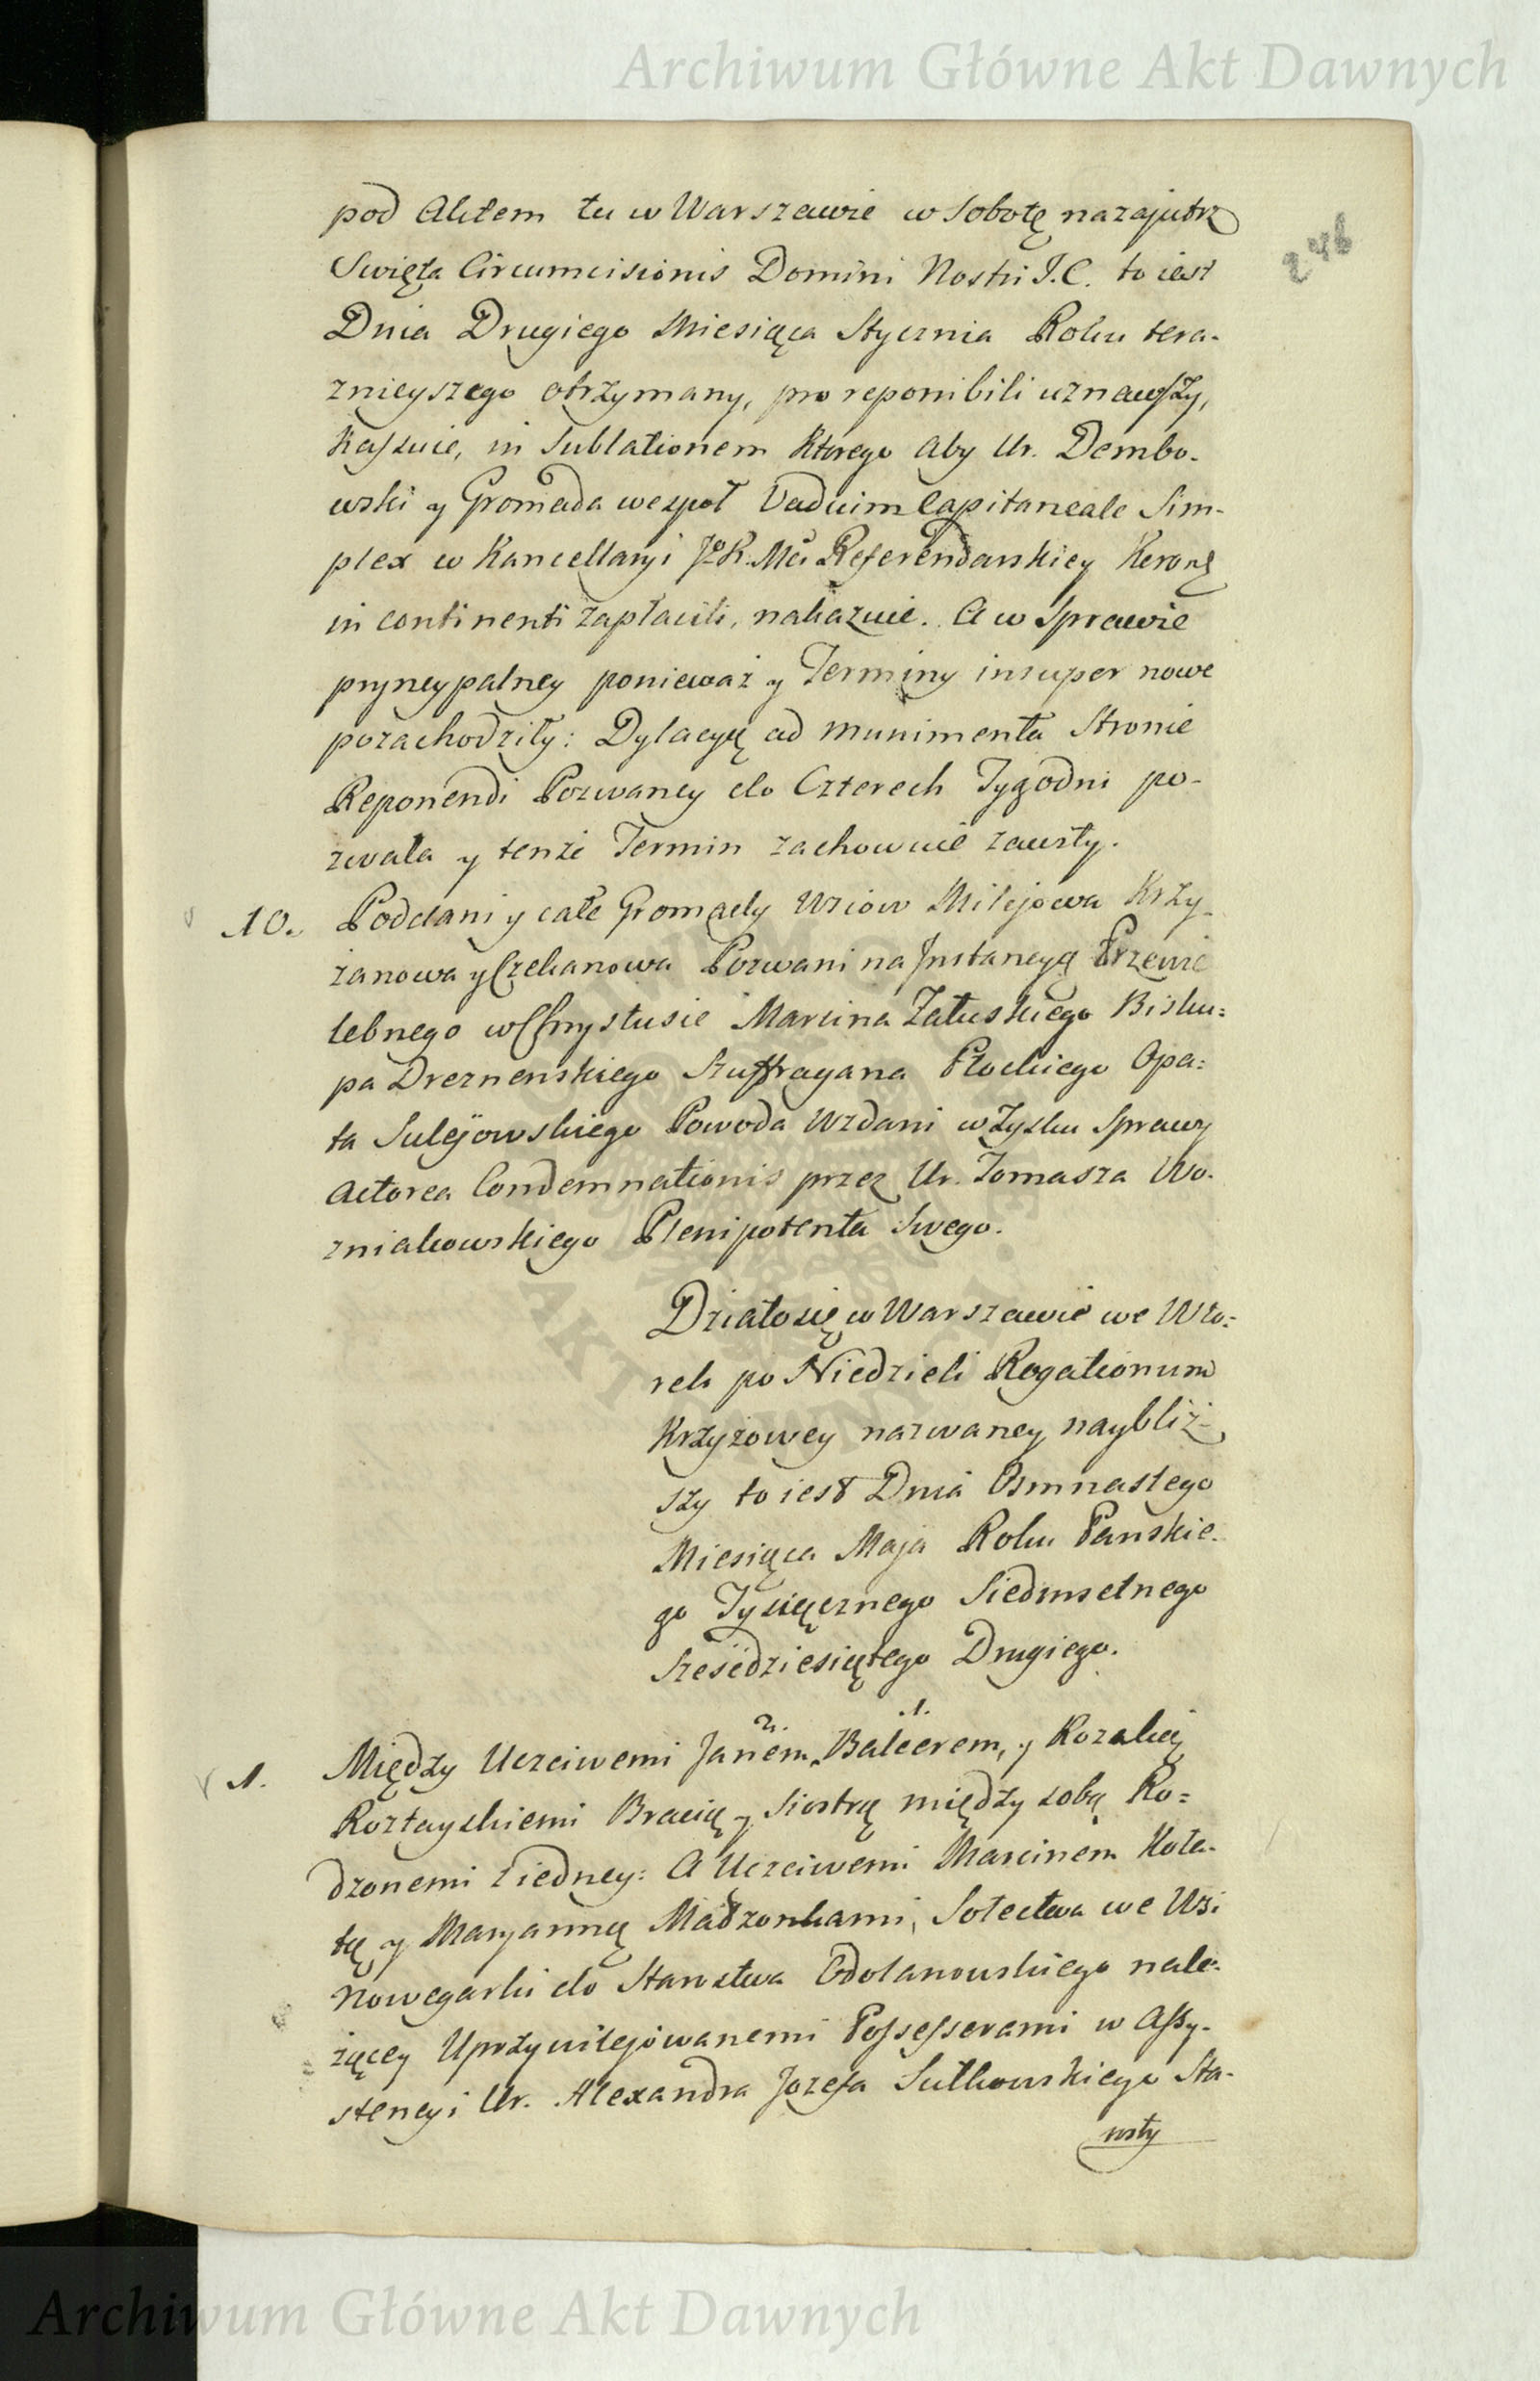 Archiwum Główne Akt Dawnych
pod Aktem tu w Warszawie w Sobotę nazajutrz
Swięta Circumcisionis Domini Nostri J.C. to iest
Dnia Drugiego Miesiąca Stycznia Roku tera-
znieyszego otrzymany, pro reponibili uznawszy,
Kassuie, in Sublationem ktorego aby Ur. Dembo-
wski y Gromada wespoł Vadium Capitaneale Sim-
plex w Kancellaryi JoK.Mci Referendarskiey Koronę
in continenti zapłacili, nakazuie. A w Sprawie
pryncypalney ponieważ y Terminy insuper nowe
pozachodziły: Dylacyą ad munimenta Stronie
Reponendi Pozwaney do Czterech Tygodni po-
zwala y tenże Termin zachowuie zawsty.
10. Poddani y całe Gromady Wsiow Milejowa Krzy-
żanowa y Czekanowa Pozwani na Instancyą Przewie
lebnego w Chrystusie Marcina Załuskiego Bisku=
pa Drezneńskiego Szuffragana Płockiego Opa=
ta Sulejowskiego Powoda Wzdani w Zysku Sprawy
Actorea Condemnationis przez Ur. Tomasza Wo-
zniakowskiego Plenipotenta Swego.
Działo się w Warszawie we Wto=
rek po Niedzieli Rogationum
Krzyżowey nazwaney naybliż-
szy to iest Dnia Osmnastego
Miesiąca Maja Roku Panskie-
go Tysiącznego Siedmsetnego
Szescdziesiątego Drugiego.
2. 1.
1. Między Uczciwemi Janem, Balcerem, y Rozalią
Roztayskiemi Bracią y Siostrą między sobą Ro=
dzonemi z iedney: A Uczciwemi Marcinem Koła-
tą y Maryanną Małżonkami, Sołectwa we Wsi
Nowegarki do Starostwa Odolanowskiego nale-
żącey Uprzywilejowanemi Possessorami w Assy-
stencyi Ur. Alexandra Jozefa Sułkowskiego Sta-
rosty
Archiwum Główne Akt Dawnych